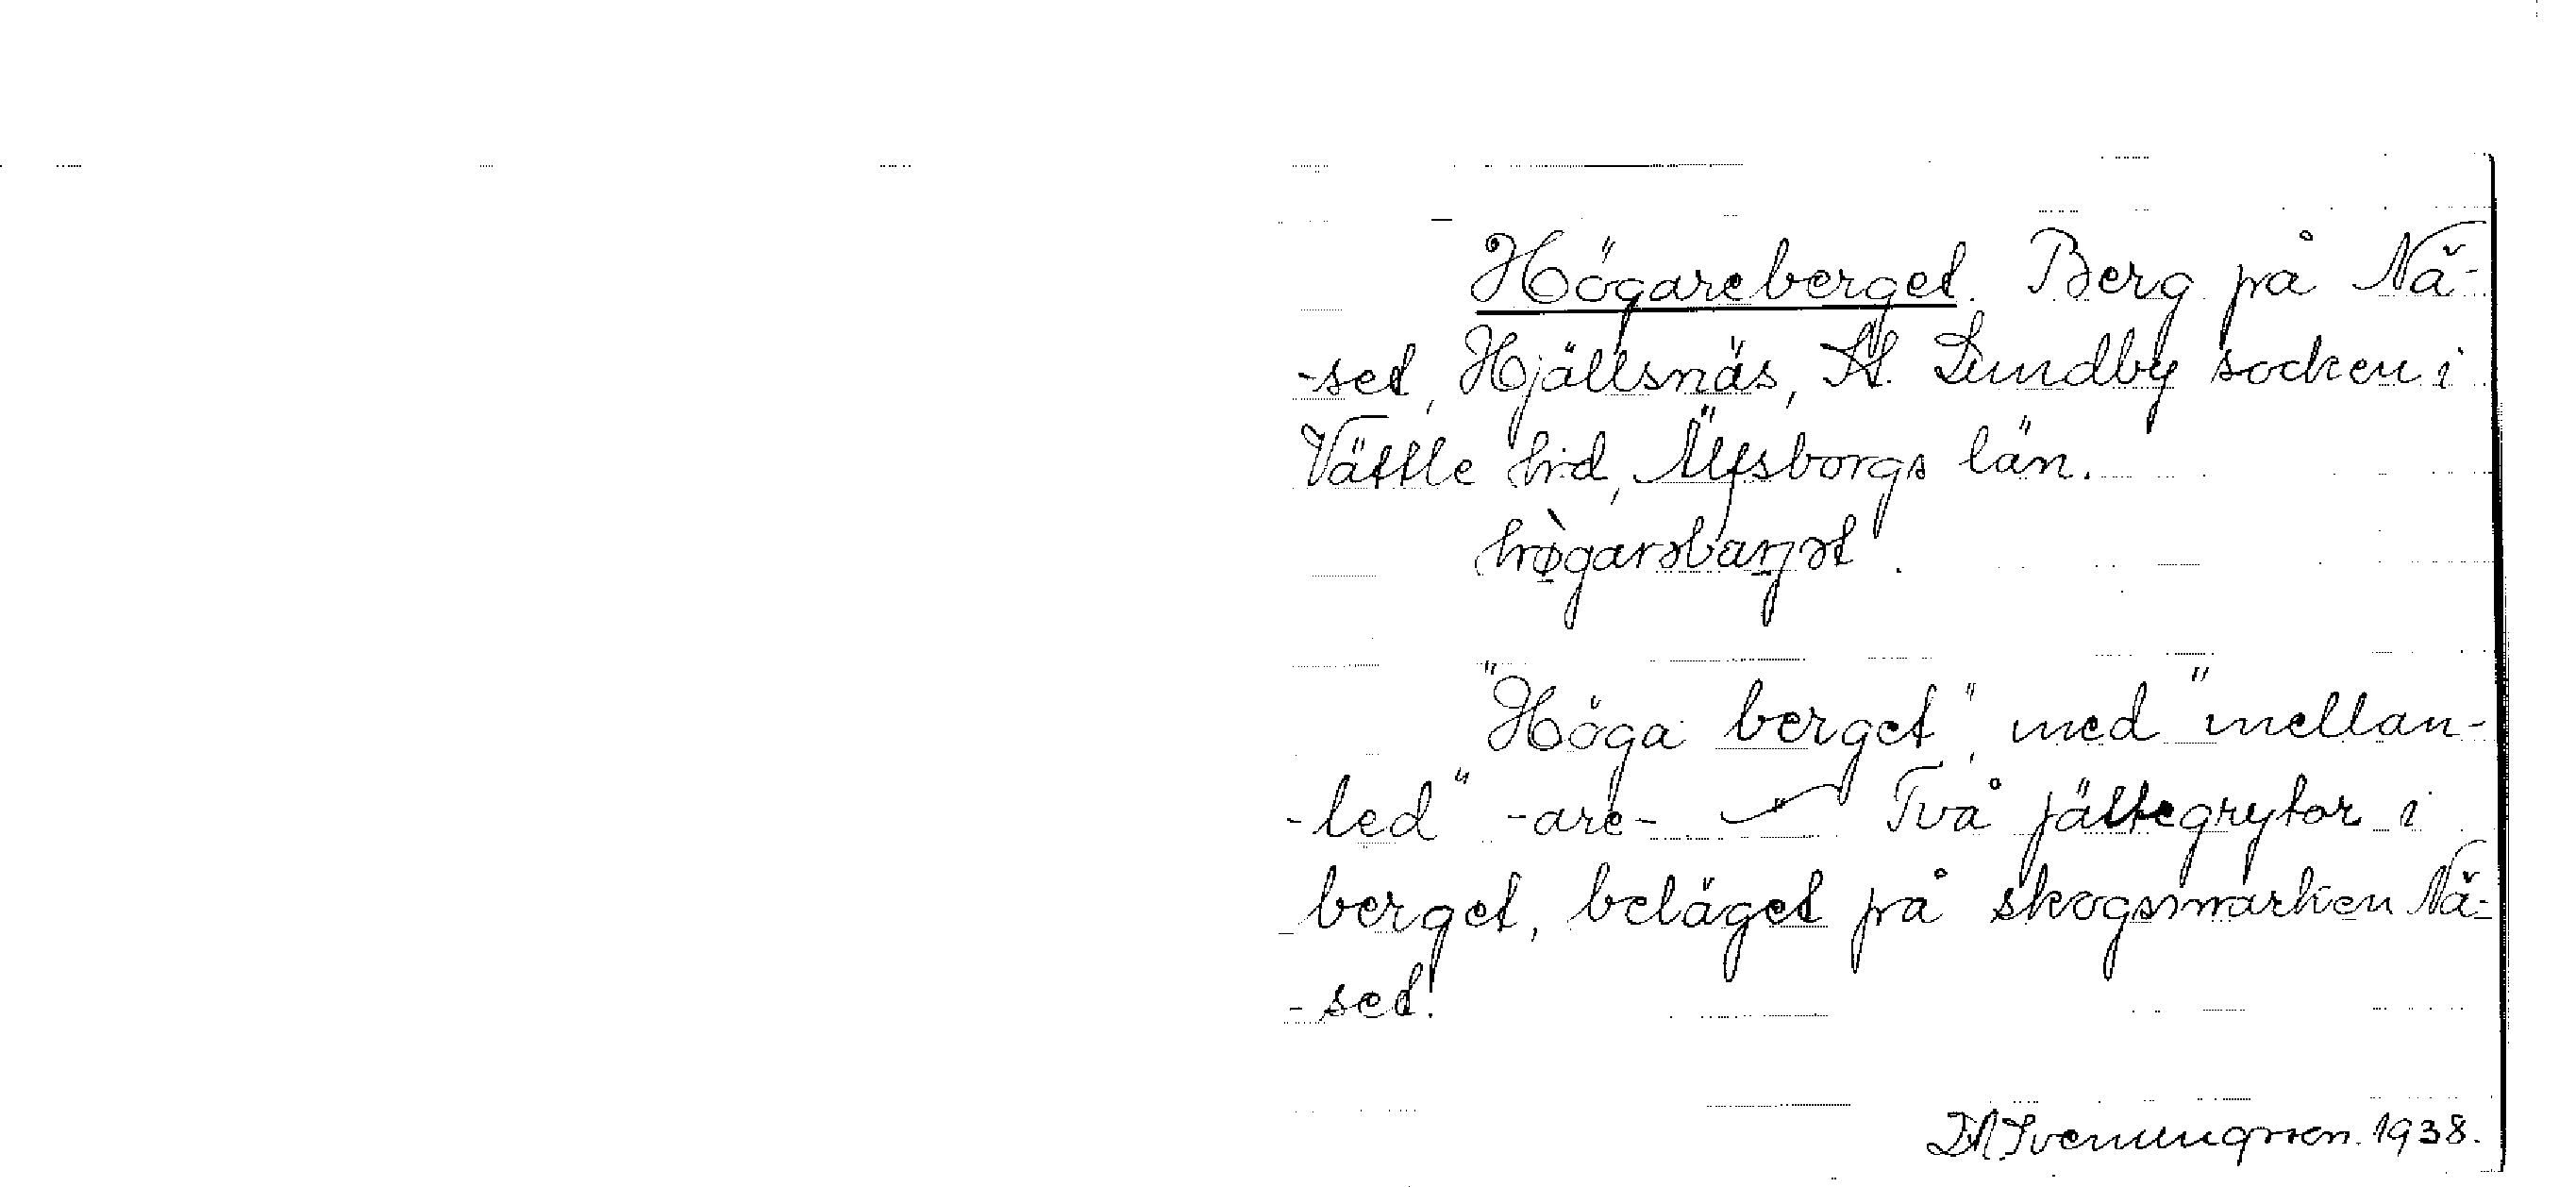 Högareberget. Berg på Nä-
-set, Hjällsnäs, St. Lundby socken i
Vättle hrd, Älfsborgs län.
hø̀garəbarjət.
"Höga berget", med "mellan-
-led" -are- Två jättegrytor i
berget, beläget på skogsmarken Nä-
-set.
Svenungsson. 1938.